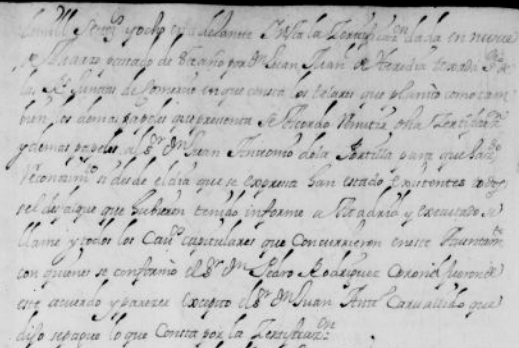 de mill Setteᵒˢ y ocho esta delantte Vista la Zertificazᵒⁿ dada en nueve
de Marzo pasado de este año por Dⁿ Juan de Heredia texada
las Rˢ Juntas de Comercio en que consta los telares que planttó como tam
bien los demas papeles que presenta Se Acordo Remitir esta Zertificazᵒⁿ
y demas papeles al Sʳ Dⁿ Juan Anttonio de la Portilla para que haziᵈᵒ
Reconozimᵗᵒ si desde el dia que se expresa han estado existentes todos
y el desfalque que hubieren tenido informe a Madrid y executado se
llame y todos los Cauˢ capitulares que Concurrieron en este Aiuntamᵗᵒ
con quienes se conformó el Sʳ Dⁿ Pedro Rodriguez Coronel fueron de
este acuerdo y parezer excepto el Sʳ Dⁿ Juan Antᵒ Carvallido que
dijo se pague lo que Consta por la Zertificazᵒⁿ